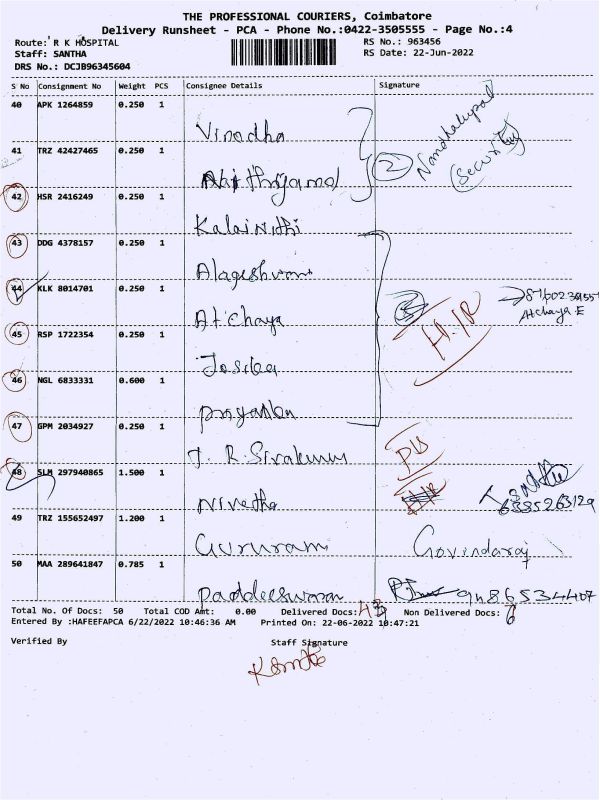 THE PROFESSIONAL COURIERS, Coimbatore
Delivery Runsheet - PCA - Phone No.:0422-3505555 - Page No.:4
Route: R K HOSPITAL RS No.: 963456
Staff: SANTHA RS Date: 22-Jun-2022
DRS No.: DCJB96345604
S No Consignment No Weight PCS Consignee Details Signature
40 APK 1264859 0.250 1
Vinodha
41 TRZ 42427465 0.250 1
2
Security
42 HSR 2416249 0.250 1
Kalainithi
43 DDG 4378157 0.250 1
44 KLK 8014701 0.250 1
Atchaya
H/R
Atchaya.E
45 RSP 1722354 0.250 1
46 NGL 6833331 0.600 1
Priyanka
47 GPM 2034927 0.250 1
T. R. Sivakumar
48 SLM 297940865 1.500 1
Nivetha
49 TRZ 155652497 1.200 1
Gururam Govindaraj
50 MAA 289641847 0.785 1
9486534407
Total No. Of Docs: 50 Total COD Amt: 0.00 Delivered Docs: Non Delivered Docs: 6
Entered By :HAFEEFAPCA 6/22/2022 10:46:36 AM Printed On: 22-06-2022 10:47:21
Verified By Staff Signature